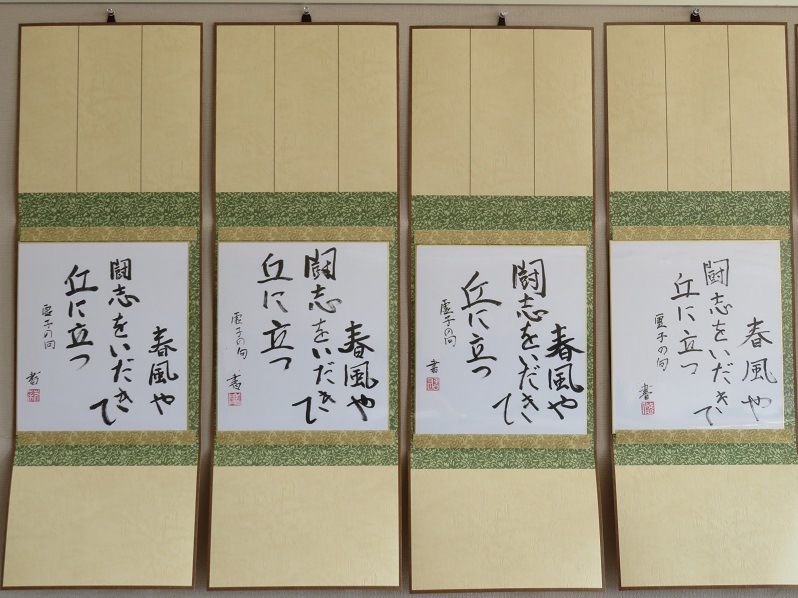 春風や
闘志をいだきて
丘に立つ
虚子の句
書
春風や
闘志をいだきて
丘に立つ
虚子の句
書
春風や
闘志をいだきて
丘に立つ
虚子の句
書
春風や
闘志をいだきて
丘に立つ
虚子の句
書